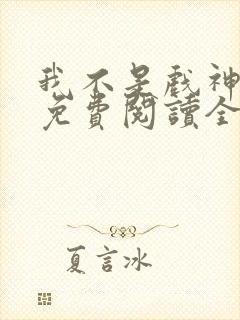 我不是戲神
免費閱讀全
夏言冰